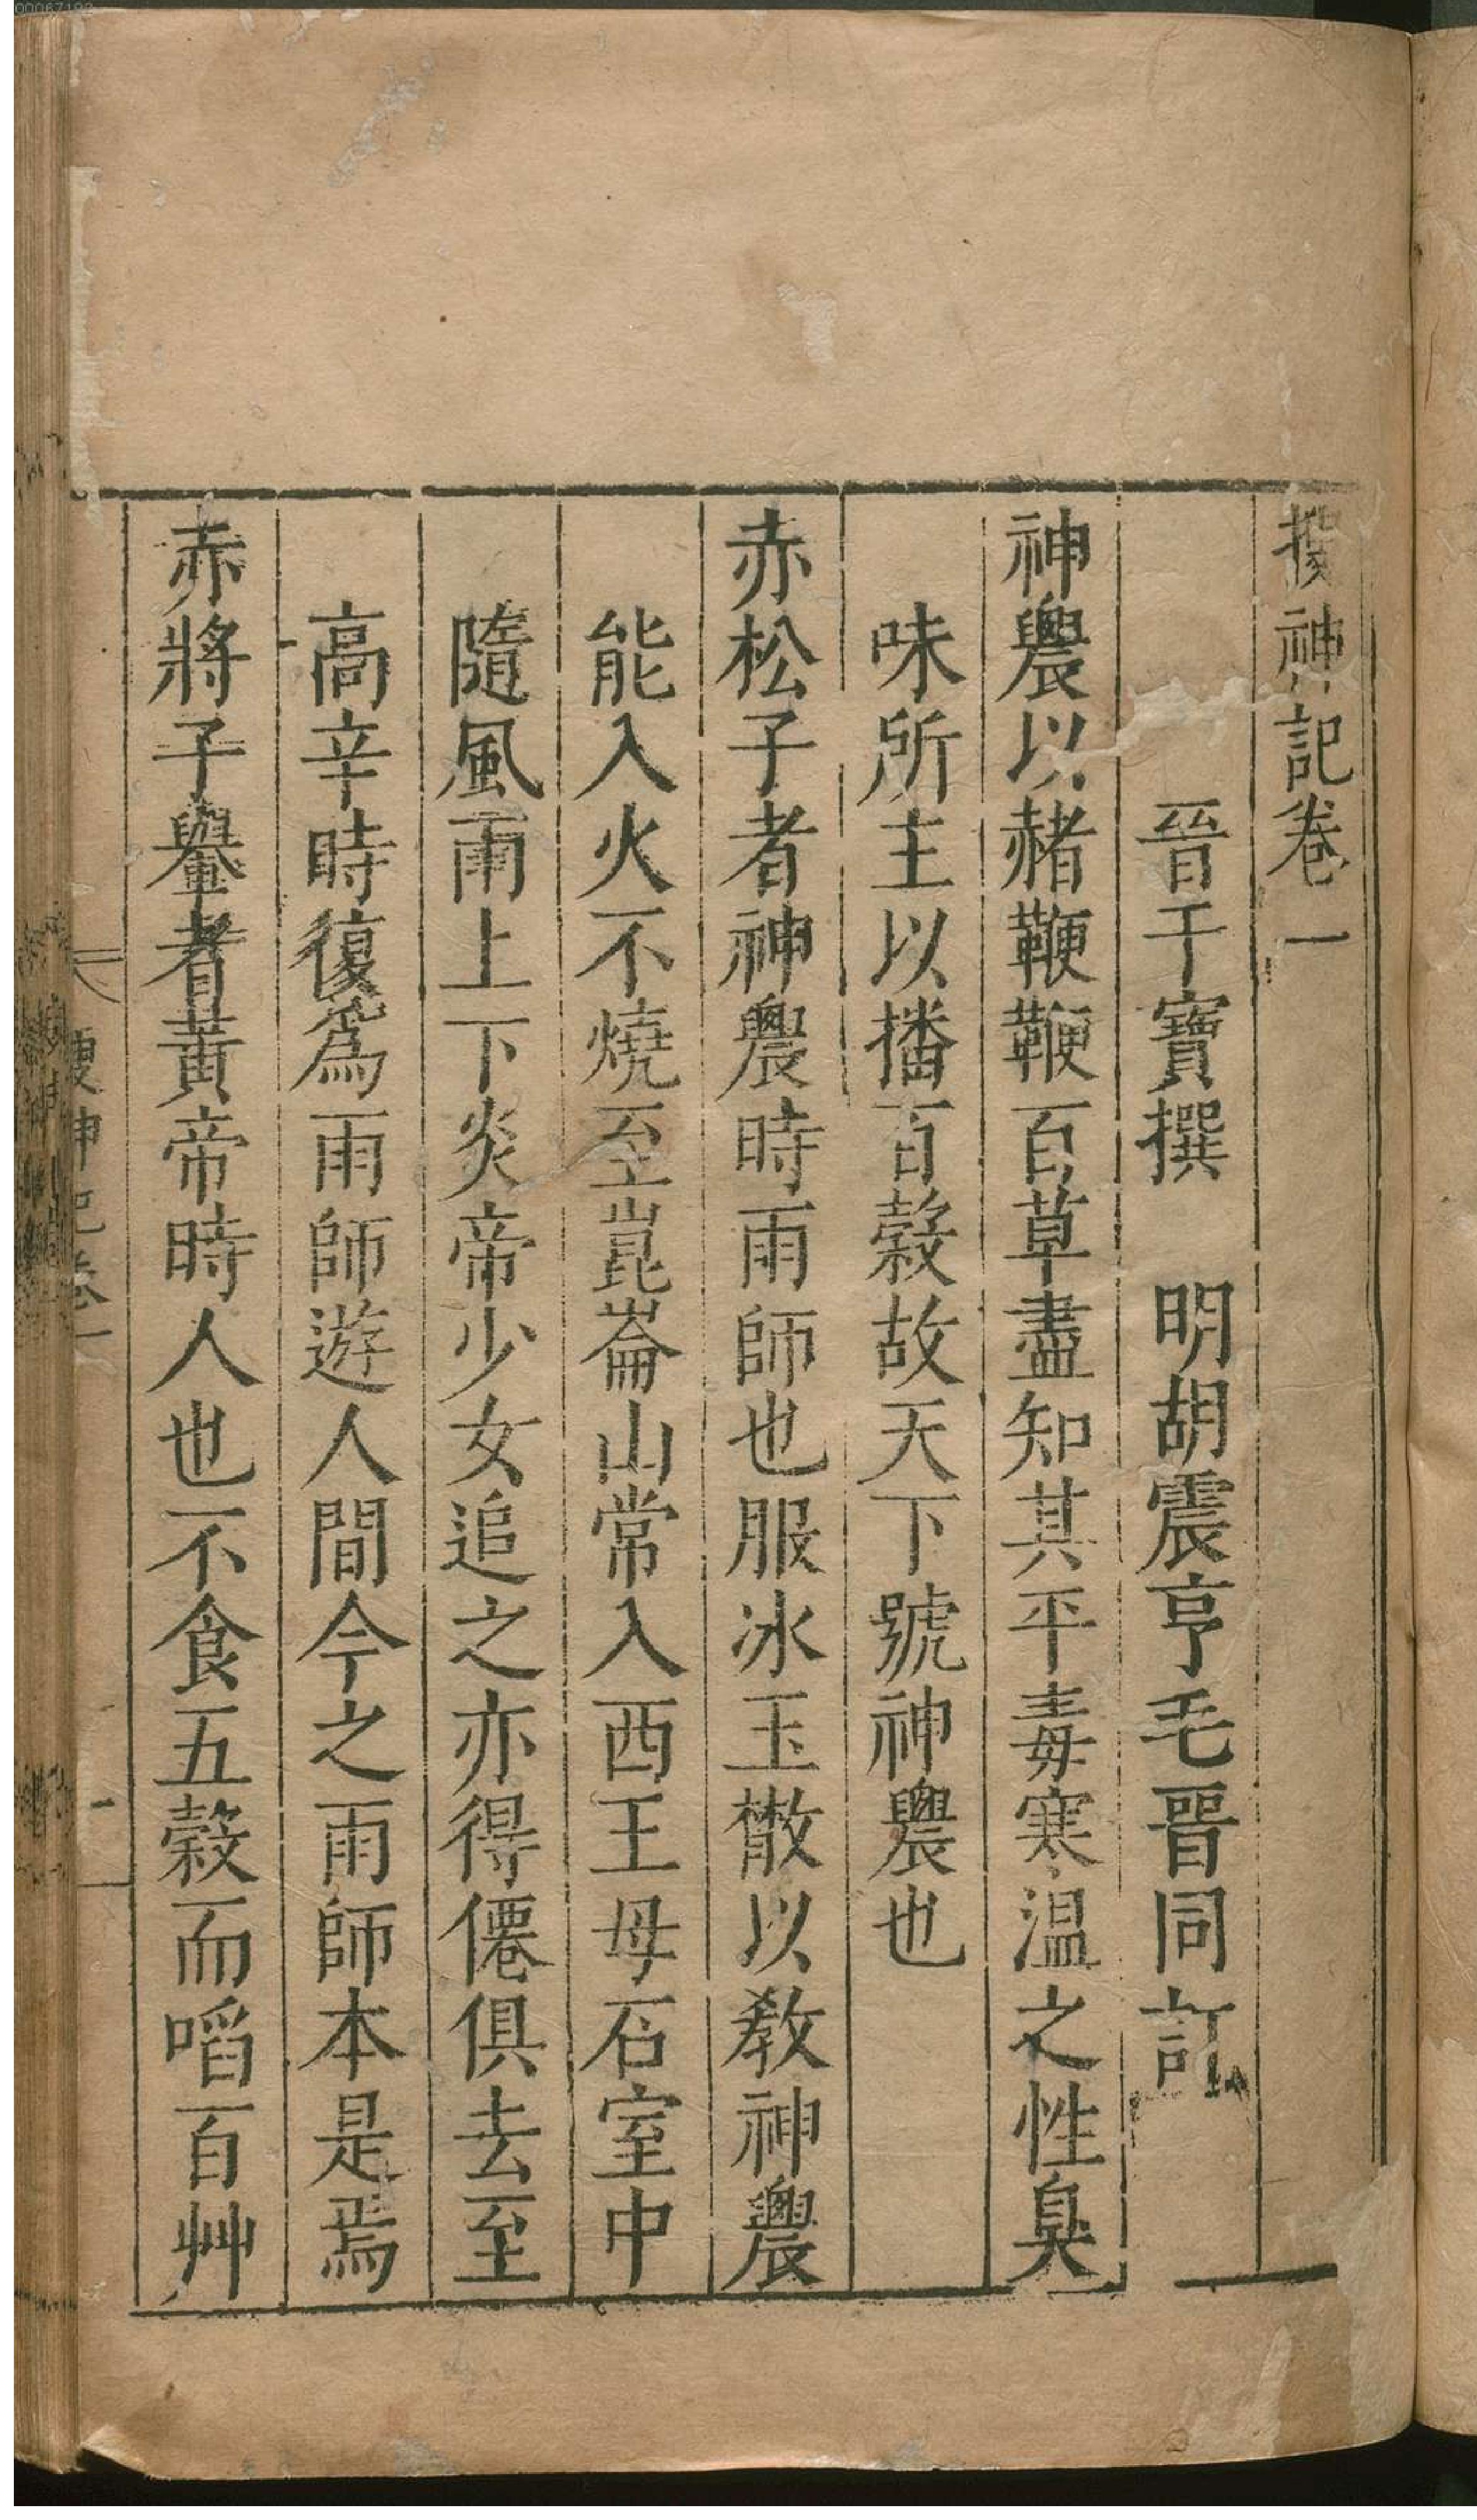 搜神記卷一
晉干寶撰　明胡震亨毛晉同訂
神農以赭鞭鞭百草盡知其平毒寒溫之性臭
味所主以播百穀故天下號神農也
赤松子者神農時雨師也服冰玉散以教神農
能入火不燒至崑崙山常入西王母石室中
隨風雨上下炎帝少女追之亦得僊俱去至
高辛時復爲雨師遊人間今之雨師本是焉
赤將子轝者黃帝時人也不食五穀而啗百艸
搜神記卷一
一
00067192